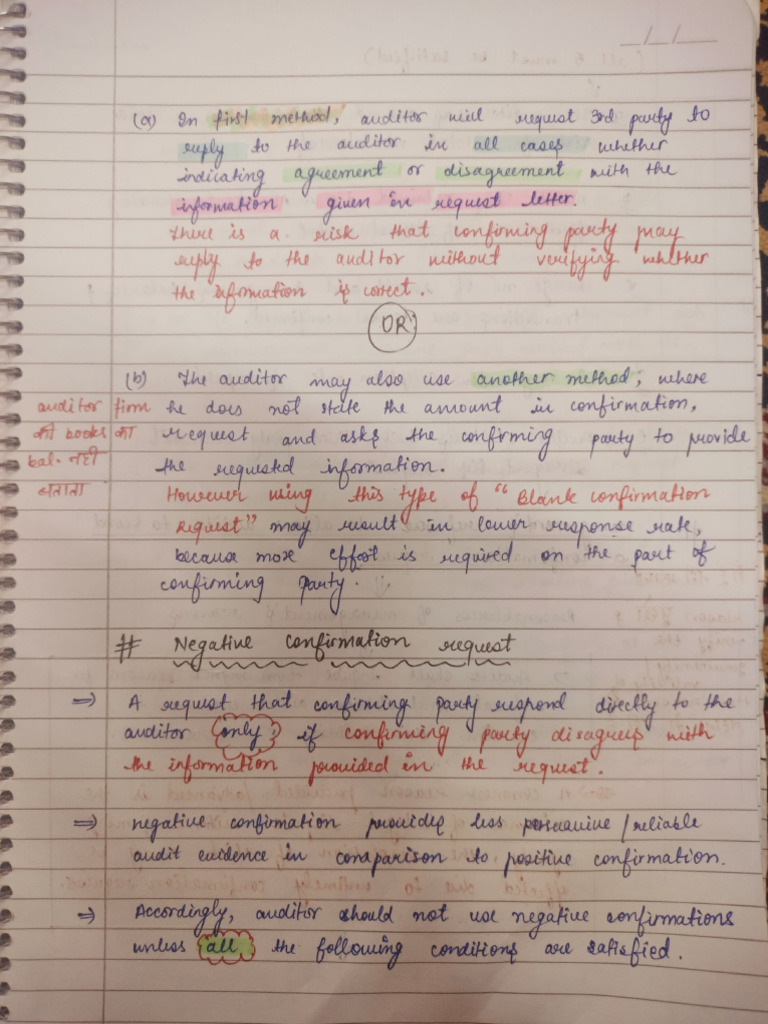 __/__/__
(a) In first method, auditor will request 3rd party to
reply to the auditor in all cases whether
indicating agreement or disagreement with the
information given in request letter.
There is a risk that confirming party may
reply to the auditor without verifying whether
the information is correct.
OR
(b) The auditor may also use another method; where
he does not state the amount in confirmation,
request and asks the confirming party to provide
the requested information.
auditor firm
की books का
bal. नही
बताता
However using this type of "Blank confirmation
request" may result in lower response rate,
because more effort is required on the part of
confirming party.
# Negative confirmation request
⇒ A request that confirming party respond directly to the
auditor only if confirming party disagrees with
the information provided in the request.
⇒ negative confirmation provides less persuasive/reliable
audit evidence in comparison to positive confirmation.
⇒ Accordingly, auditor should not use negative confirmations
unless all the following conditions are satisfied.